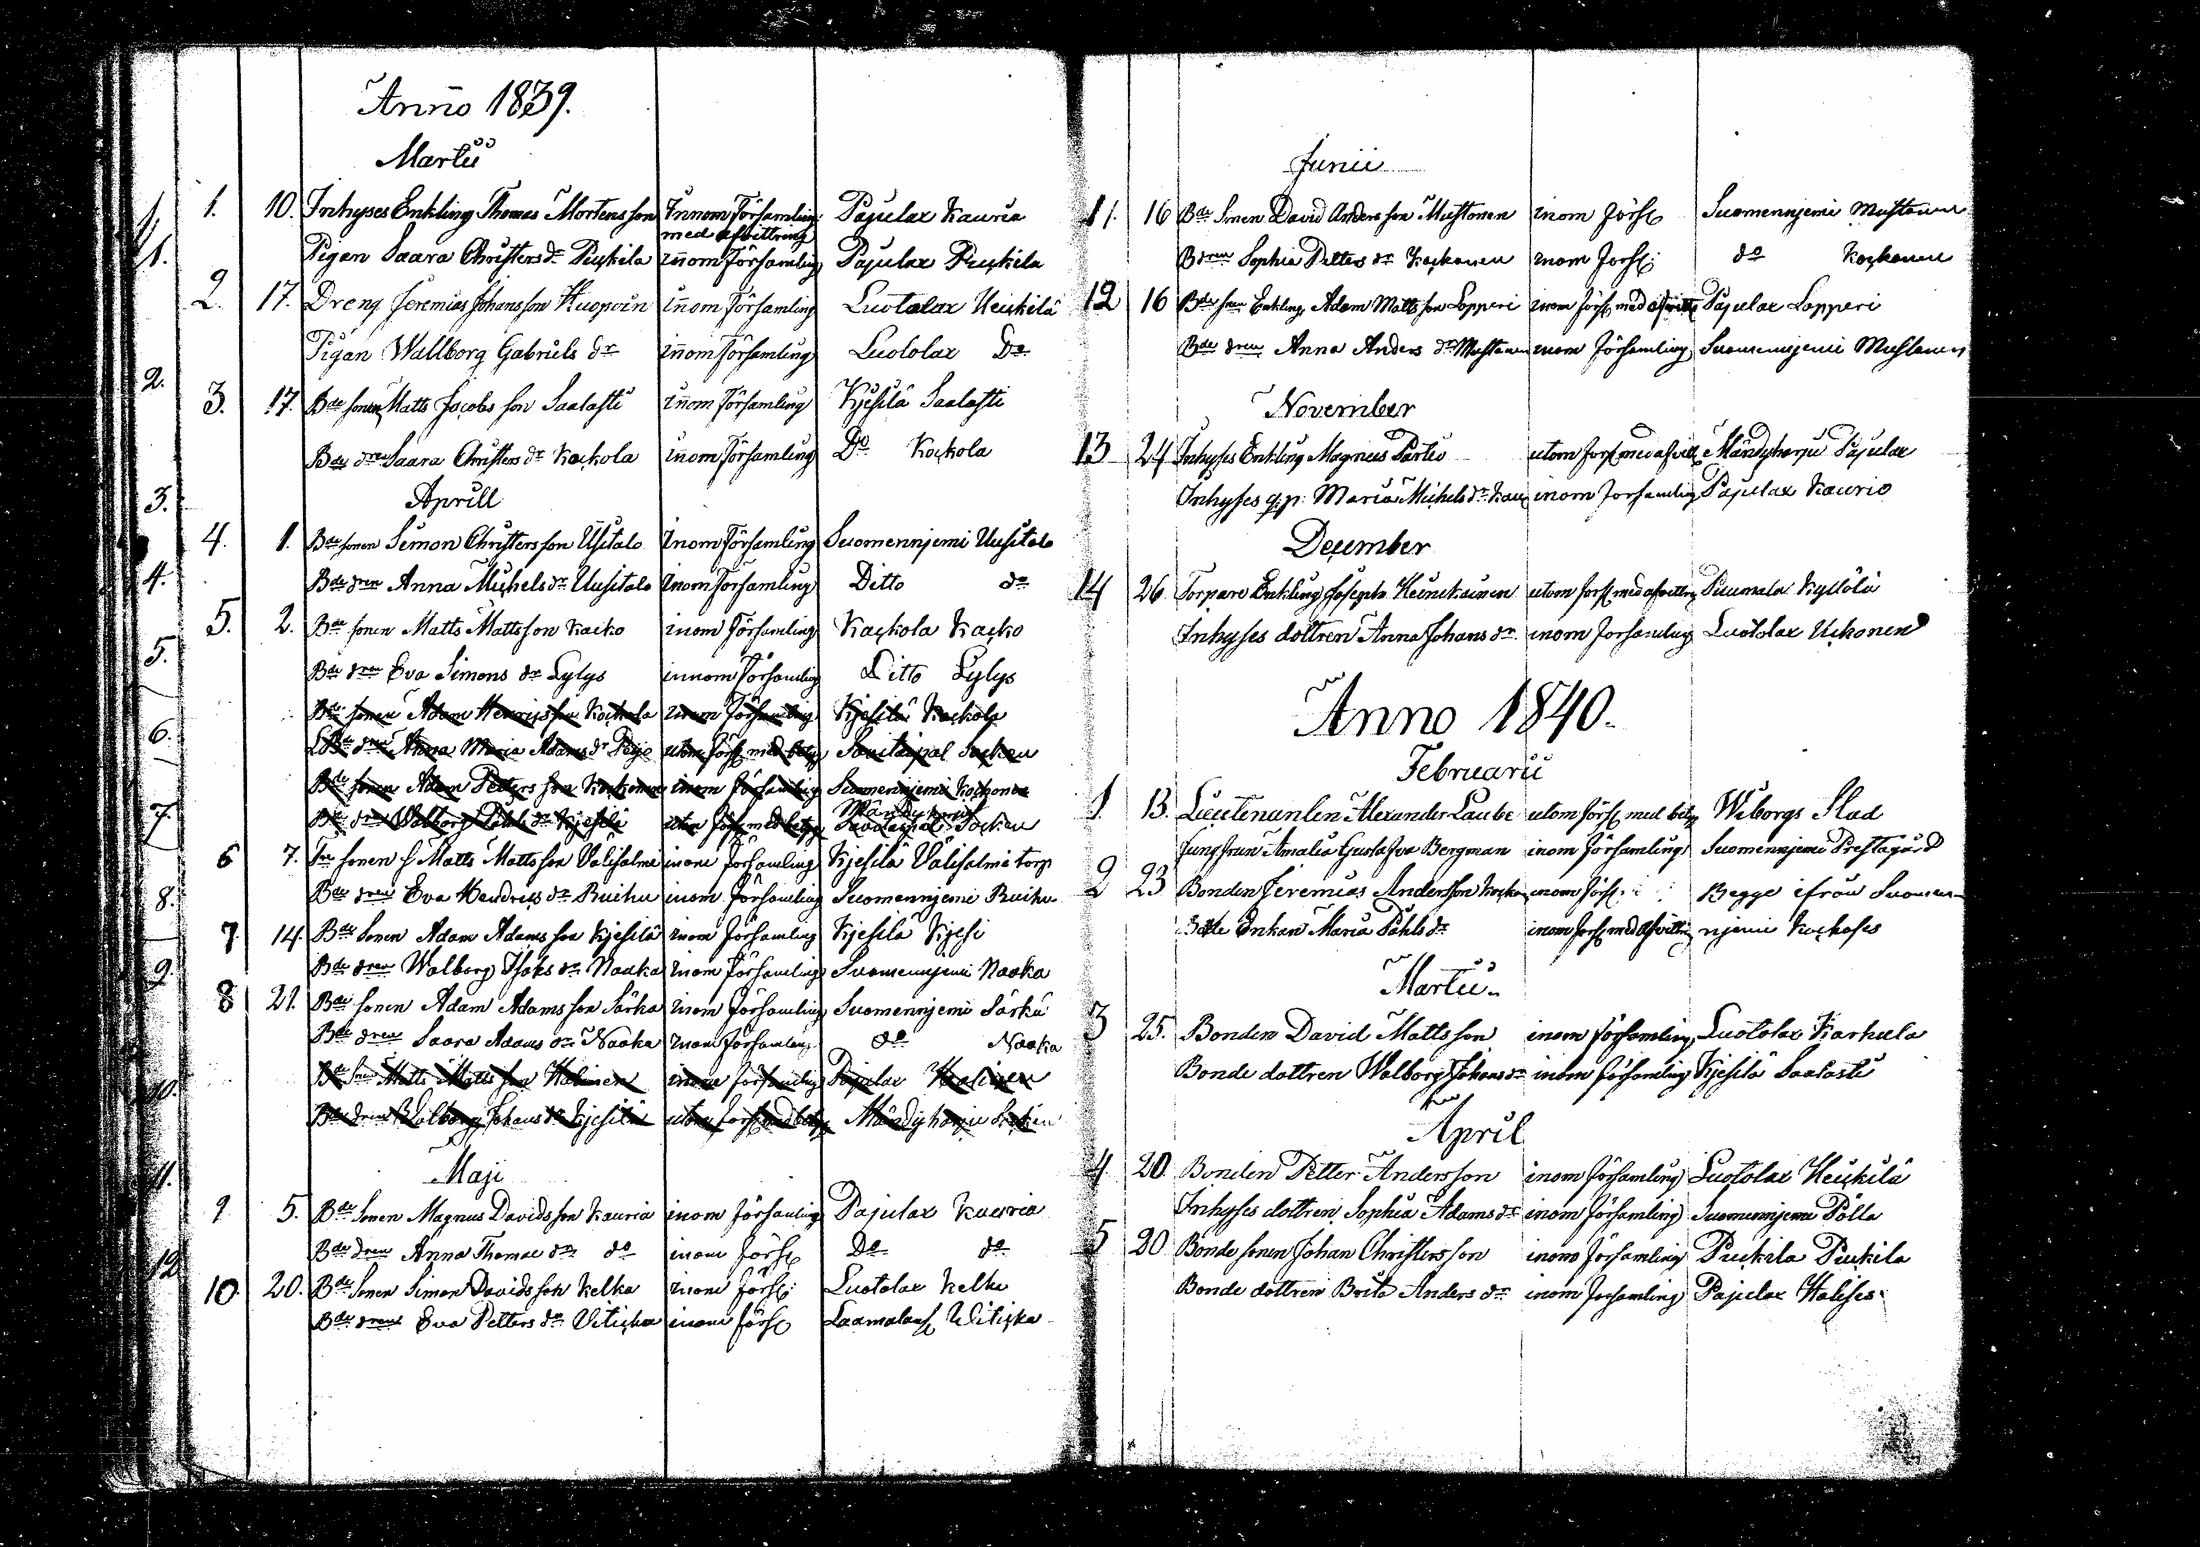 Anno 1839.
Martii
1. 10. Inhyses Enkling Thomas Mortensson Innom Församling Pajulax Kauria
med afvittring
1. Pigan Saara Christers dr Piukkila innom Församling Pajulax Piukkila
2. 17. Dreng Jeremias Johansson Kuopoin innom Församling Luotolax Heickilä
Pigan Wallborg Gabriels dr innom Församling Luotolax Do
2.
3. 17. Bde sonen Matts Jacobs son Saalasti innom Församling Kjesilä Saalasti
Bde dren Saara Christers dr Kockola innom Församling Do Kockola
Aprill
3.
4. 1. Bde sonen Simon Christersson Usitalo Inom Församling Suomennjemi Uusitalo
4. Bde dren Anna Michels dr Uusitalo Inom Församling Ditto do
5. 2. Bde sonen Matts Mattsson Kacko inom Församling Kackola Kacko
5. Bde dren Eva Simons dr Lylys innom Församling Ditto Lylys
Bde sonen Adam Henricsson Kockola inom Församling Kjesilä Kockola
6. Bde dren Anna Maria Adams dr utom Förs med betyg Savitaipal Socken
Bde sonen Adam Petters son Kockonen inom Församling Suomennjemi Kockonen
Mändyharju
7. Bde dren Walborg Påhls dr Kjesilä utom Förs med betyg Savitaipal Socken
6 7. Tor sonen Matts Matts son Välisalmi inom församling Kjesilä Välisalmi torp
8. Bde dren Eva Hendrics dr Ruihu inom församling Suomennjemi Ruihu
7. 14. Bde Sonen Adam Adams son Kjesilä inom församling Kjesilä Kjesi
9. Bde dren Walborg Isaks dr Naaka inom församling Suomennjemi Naaka
8 21. Bde sonen Adam Adams son Särkä inom församling Suomennjemi Särkä
Bde dren Saara Adams dr Naaka inom församling do Naaka
10. Bde sonen Matts Matts son Halinen inom församling Pajulax Halinen
Bde dren Walborg Johans dr Kjesilä utom förs med betyg Mändyharju Socken
11. Maji
9 5. Bde Sonen Magnus Davids son Kauria inom församling Pajulax Kauria
12 Bde dren Anna Thomae dr do inom förs Do do
10 20. Bde Sonen Simon Davids son Kelka inom förs Luotolax Kelka
Bde dren Eva Petters dr Viticka inom förs Witicka
Junii
11. 16 Bde Sonen David Anders son Mustonen inom förs Suomennjemi Mustonen
B dren Sophia Petters dr Kockonen inom förs: do Kockonen
12 16 Bde son Enkling Adam Matts son Lopperi inom förs med afvittr Pajulax Lopperi
Bde dren Anna Anders dr Mustonen inom församling Suomennjemi Mustonen
November
13 24 Inhyses Enkling Magnus Partio utom förs med afvittr Mändyharju Pajulax
Inhyses Maria Michels dr inom församling Pajulax Kauria
December
14 26. Torpare Enkling Joseph Heinikainen utom förs med afvittr Puumala Kyllölä
Inhyses dottren Anna Johans dr inom församling Luotolax Uckonen
Anno 1840.
Februarii
1 13. Lieutenanten Alexander Laube utom förs med betyg Wiborgs Stad
Jungfrun Amalia Gustafva Bergman inom församling Suomennjemi Prestagård
2 23 Bonden Jeremias Andersson inom förs: Begge ifrån Suomen-
Bde Enkan Maria Påhls dr inom förs med afvittring njemi
Martii
3 25. Bonden David Mattsson inom församling Luotolax Karhula
Bonde dottren Walborg Johans dr inom församling Kjesilä Saalasti
April
4 20 Bonden Petter Andersson inom församling Luotolax Heickilä
Inhyses dottren Sophia Adams dr inom församling Suomennjemi Pöllä
5 20 Bonde sonen Johan Christersson inom församling Piukila Piukila
Bonde dottren Brita Anders dr inom församling Pajulax